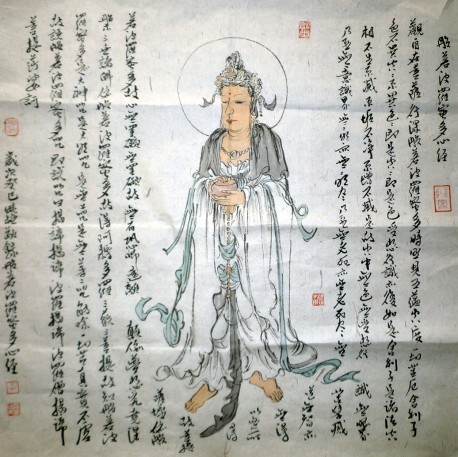 般若波羅蜜多心經
觀自在菩薩行深般若波羅蜜多時照見五蘊皆空度一切苦厄舍利子
色不異空空不異色色即是空空即是色受想行識亦復如是舍利子是諸法空
相不生不滅不垢不淨不增不減是故空中無色無受想行
識無眼界
乃至無意識界無無明亦無無明盡乃至無老死亦無老死盡無
苦集滅
道無智亦
無得
以無所
得
故菩
若波羅蜜多故心無罣礙無罣礙故無有恐怖遠離
顛倒夢想究竟涅
槃三世諸佛依般若波羅蜜多故得阿耨多羅三藐三菩提故知般若波
羅蜜多是大神咒是大明咒是無上咒是無等等咒能除一切苦真實不虛
故說般若波羅蜜多咒即說咒曰揭諦揭諦波羅揭諦波羅僧揭諦
菩提薩婆訶
歲次癸巳 敬錄般若波羅蜜多心經